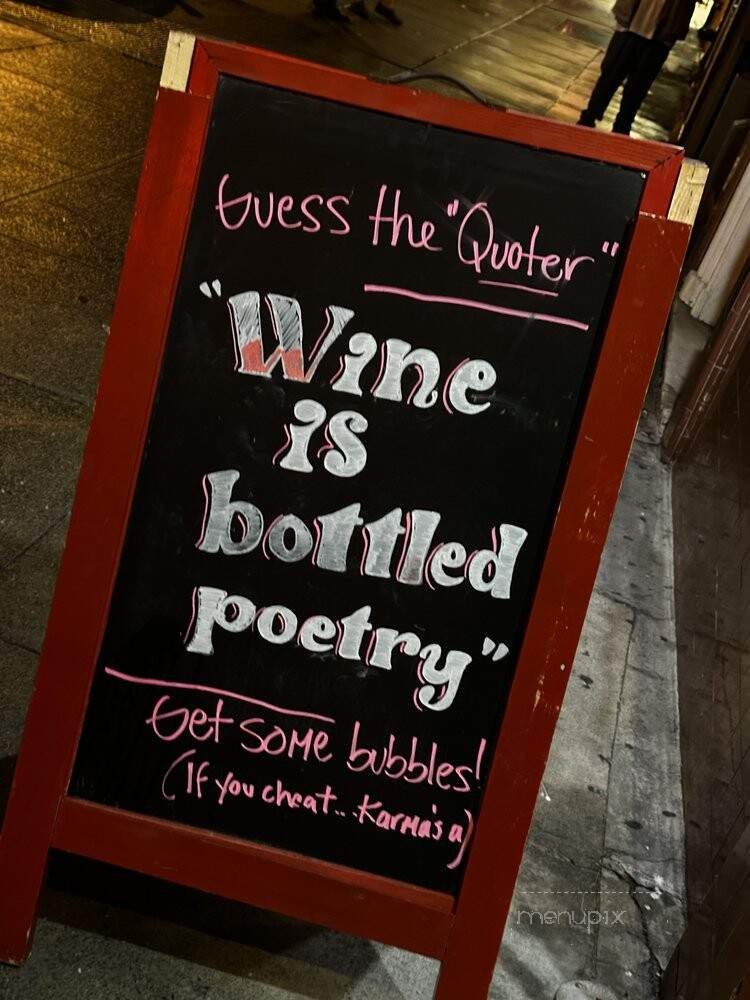 Guess the "Quoter"
"Wine
is
bottled
poetry"
Get some bubbles!
(If you cheat... Karma's a)
menupix